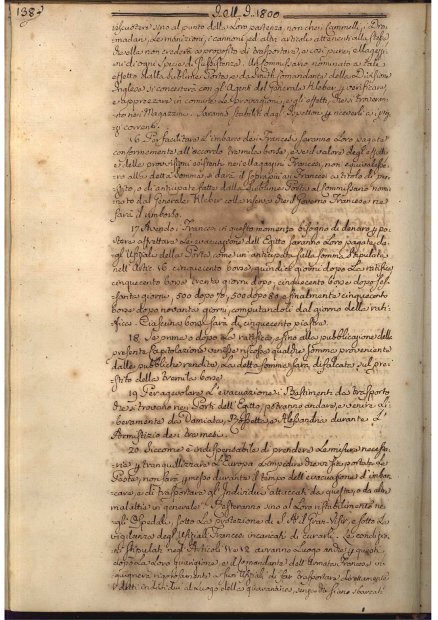 138
Dell' A. 1800
riscuotere sino al punto della loro partenza, non che i Cammelli, i Dro-
madari, le monizioni, i cannoni, ed altri articoli
Ella non crederà a proposito di trasportare, e così pure i Magazzi-
ni di ogni specie di sussistenza. Un Commissario nominato a tale
effetto dalla Sublime Porta, e da Smith Comandante della Divisione
Inglese si concerterà con gli Agenti del Generale Kleber, e verificare,
e apprezzare in comune le provvisioni, e gli effetti, che si troveran-
no nei Magazzini. Saranno stabiliti degli Aspettori per riceverli a
prezzi correnti.
16. Per facilitare l'imbarco de' Francesi, saranno loro pagate
conformemente all'accordo tremila borse, e se il valore degli effetti,
e delle provvisioni esistenti nei Magazzini Francesi, non equivalesse-
ro alla detta somma, si darà il soprapiù ai Francesi a titolo di pre-
stito, o di anticipate fatte dalla Sublime Porta al Commissario nomi-
nato dal Generale Kleber colla riserva che il Governo Francese ne
farà il rimborso.
17. Avendo i Francesi in questo momento bisogno di denaro, per
potere affrettare l'evacuazione dell'Egitto saranno loro pagate da-
gli Uffiziali della Porta come un'anticipata sulla somma stipulata
nell'Artic. 16 cinquecento borse quindici giorni dopo la ratifica
cinquecento borse trenta giorni dopo, cinquecento borse dopo ses-
santa giorni, 500 dopo 70, 500 dopo 80 e finalmente cinquecento
borse dopo novanta giorni, computandoli dal giorno della rati-
fica. Ciascuna borsa sarà di cinquecento piastre.
18. Se prima o dopo la ratifica, e fino alla pubblicazione della
presente Capitolazione venisse riscossa qualche somma proveniente
dalle pubbliche rendite, la detta somma sarà difalcata sul pre-
stito delle tremila borse.
19. Per agevolare l'evacuazione, i Bastimenti da trasporto
che si trovano nei Porti dell'Egitto, potranno andare, e venire li-
beramente da Damiata, Rossetto, e Alessandria durante l'
Armistizio dei tre mesi.
20. Siccome è indispensabile di prendere le misure necessa-
rie per tranquillizzare l'Europa, e impedire che vi sia portata la
Peste, non sarà permesso durante il tempo dell'evacuazione d'imbar-
care, e di trasportare gli Individui attaccati da questa, o da altre
malattie in generale. Resteranno sino al loro ristabilimento ne-
gli Ospedali, sotto la protezione di S. A. il Gran Visir, e sotto la
vigilanza degli Uffiziali Francesi incaricati di curarli. Le condizio-
ni stipulate negli Articoli 11 e 12 avranno luogo anche per questi
dopo la loro guarigione, e il Comandante dell'Armata Francese
ingiungerà rigorosamente a' suoi Uffiziali di far trasportare direttamente
i detti individui al luogo della quarantina, senza che siano sbarcati